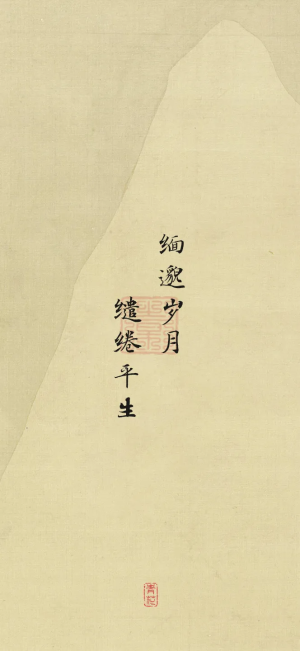 缅邈岁月
缱绻平生